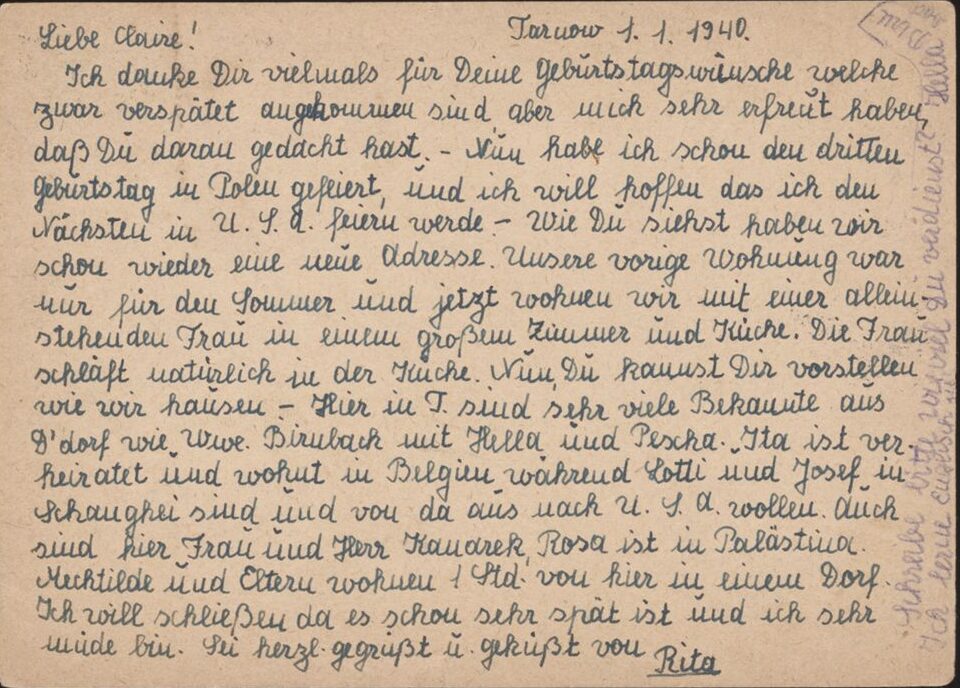 Liebe Claire! Tarnow 1. 1. 1940.
Ich danke Dir vielmals für Deine Geburtstagswünsche welche
zwar verspätet angekommen sind, aber mich sehr erfreut haben,
daß Du daran gedacht hast. – Nun habe ich schon den dritten
Geburtstag in Polen gefeiert, und ich will hoffen das ich den
Nächsten in U. S. A. feiern werde – Wie Du siehst haben wir
schon wieder eine neue Adresse. Unsere vorige Wohnung war
nur für den Sommer und jetzt wohnen wir mit einer allein-
stehenden Frau in einem großem Zimmer und Küche. Die Frau
schläft natürlich in der Küche. Nun, Du kannst Dir vorstellen
wie wir hausen – Hier in T. sind sehr viele Bekannte aus
D'dorf wie Wwe. Birnbach mit Hella und Pescha. Ita ist ver-
heiratet und wohnt in Belgien während Lotti und Josef in
Schanghei sind und von da aus nach U. S. A. wollen. Auch
sind hier Frau und Herr Kanarek, Rosa ist in Palästina.
Mechtilde und Eltern wohnen 1 Std. von hier in einem Dorf.
Ich will schließen da es schon sehr spät ist und ich sehr
müde bin. Sei herzl. gegrüßt u. geküßt von
Rita
Schreibe bitte wieviel Du verdienst? Hella
Ich lerne Englisch